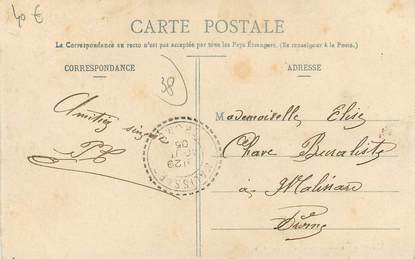 40 €
CARTE POSTALE
La Correspondance au recto n'est pas acceptée par tous les Pays Étrangers. (Se renseigner à la Poste.)
CORRESPONDANCE
ADRESSE
38
Amitiés
Mademoiselle Elise
Chave Buraliste
à Malissard
Drôme
05
29